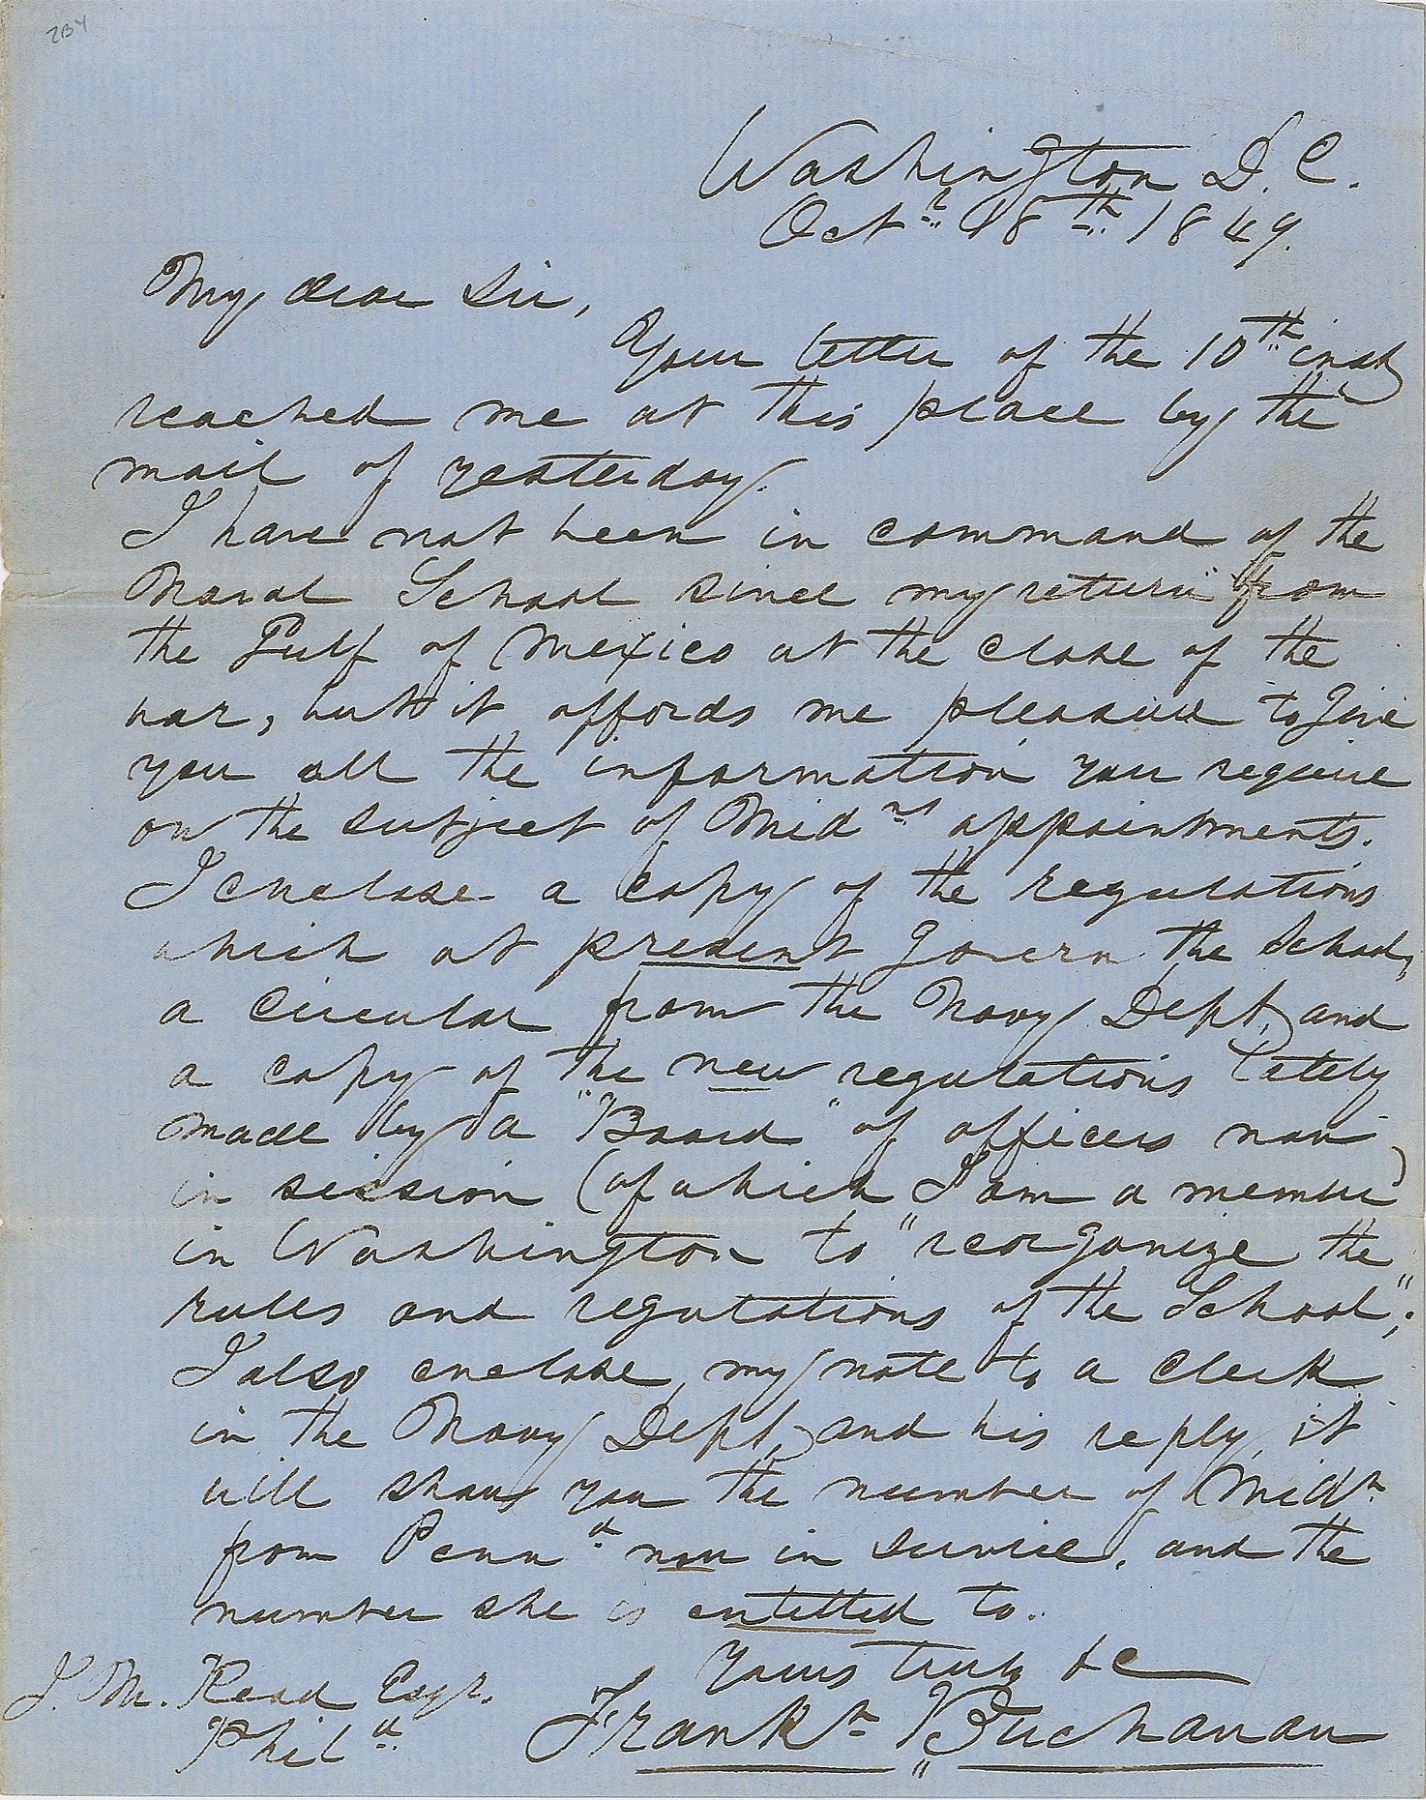 2B4
Washington D.C.
Octr 18th 1849.
My dear Sir,
Your letter of the 10th inst
reached me at this place by the
mail of yesterday.
I have not been in command of the
Naval School since my return from
the Gulf of Mexico at the close of the
war, but it affords me pleasure to give
you all the information you require
on the subject of Midns appointments.
I enclose a copy of the regulations
which at present govern the School,
a circular from the Navy Dept, and
a copy of the new regulations lately
made by a "Board" of officers now
in session (of which I am a member)
in Washington to "reorganize the
rules and regulations of the School";
I also enclose, my note to a clerk
in the Navy Dept, and his reply, it
will show you the number of Midn
from Penna now in service, and the
number she is entitled to.
Yours truly &c
J. M. Read Esqr.
Phila
Frankn Buchanan